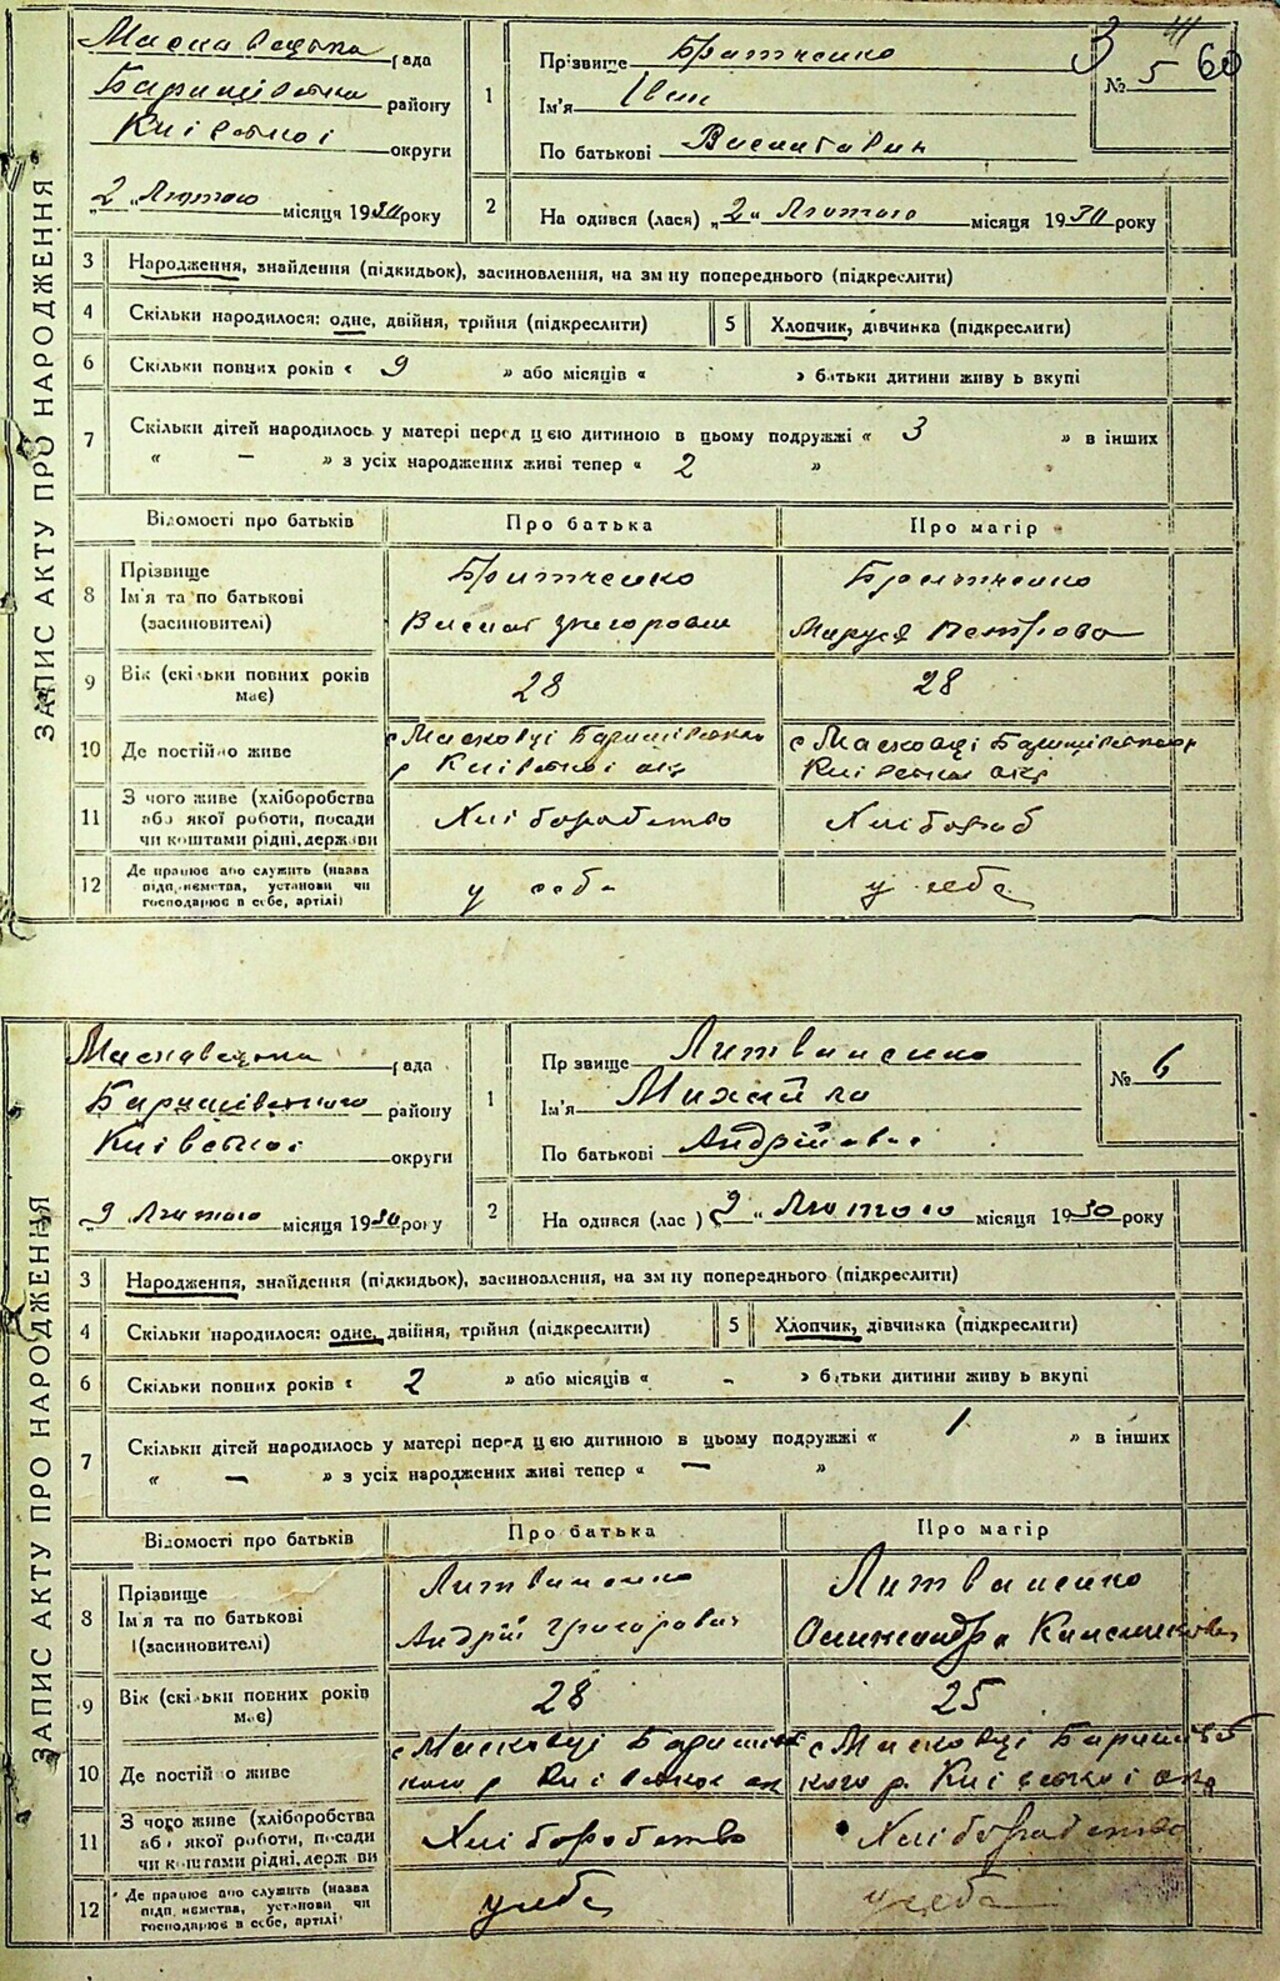 ЗАПИС АКТУ ПРО НАРОДЖЕННЯ
Масковецька рада
Баришівська району
Київської округи
„2“ Лютого місяця 1930 року
1
Прізвище Братченко
Ім'я Іван
По батькові
№ 5
3
60
2
На одився (лася) „2“ Лютого місяця 1930 року
3 Народження, знайдення (підкидьок), засиновлення, на зм ну попереднього (підкреслити)
4 Скільки народилося: одне, двійня, трійня (підкреслити) 5 Хлопчик, дівчинка (підкреслити)
6 Скільки повних років « 9 » або місяців « » батьки дитини живу ь вкупі
7 Скільки дітей народилось у матері перед цією дитиною в цьому подружжі « 3 » в інших
« – » з усіх народжених живі тепер « 2 »
Відомості про батьків Про батька Про матір
8 Прізвище Ім'я та по батькові (засиновителі)
Братченко Братченко
Григорович Маруся Петрова
9 Вік (скільки повних років має) 28 28
10 Де постійно живе
с Масковці Баришівська с Масковці Баришівського
р Київської окр Київської окр
11 З чого живе (хліборобства
або якої роботи, посади
чи коштами рідні, держави
Хліборобство Хлібороб
12 Де працює або служить (назва
підп иємства, установи чи
господарює в себе, артілі)
у себе у себе
ЗАПИС АКТУ ПРО НАРОДЖЕННЯ
Масковецька рада
Баришівського району
Київської округи
„9 Лютого місяця 1930 року
1
Пр звище Литвиненко
Ім'я Михайло
По батькові Андрійович
№ 6
2
На одився (лас ) 9 “ Лютого місяця 1930 року
3 Народження, знайдення (підкидьок), засиновлення, на зм ну попереднього (підкреслити)
4 Скільки народилося: одне, двійня, трійня (підкреслити) 5 Хлопчик, дівчинка (підкреслити)
6 Скільки повних років « 2 » або місяців « - » батьки дитини живу ь вкупі
7 Скільки дітей народилось у матері перед цією дитиною в цьому подружжі « 1 » в інших
« – » з усіх народжених живі тепер « – »
Відомості про батьків Про батька Про матір
8 Прізвище Ім'я та по батькові (засиновителі)
Литвиненко Литвиненко
Андрій Григорович Олександра
9 Вік (скільки повних років має) 28 25
10 Де постійно живе
с Масковці Баришівсь с Масковці Баришівсь
кого р Київської ок кого р. Київської окр
11 З чого живе (хліборобства
або якої роботи, посади
чи коштами рідні, держ ви
Хліборобство Хліборобство
12 Де працює або служить (назва
підп иємства, установи чи
господарює в себе, артілі
у себе у себе